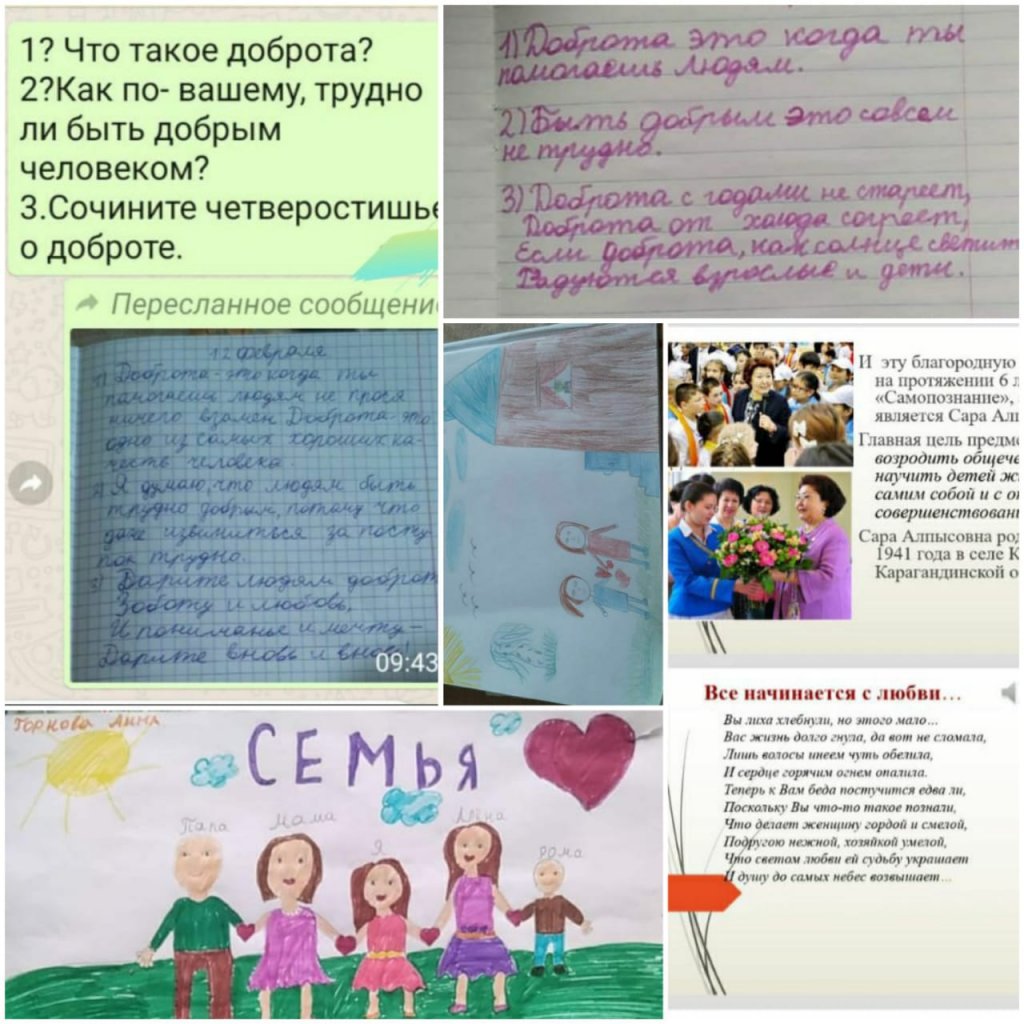 1? Что такое доброта?
2?Как по- вашему, трудно
ли быть добрым
человеком?
3.Сочините четверостишье
о доброте.
Пересланное сообщение
12 февраля
1) Доброта - это когда ты
помогаешь людям не прося
ничего взамен Доброта - это
одно из самых хороших ка-
честв человека.
2) Я думаю, что людям быть
трудно добрым, потому что
даже извиниться за посту
пок трудно.
3) Дарите людям доброт
Зоботу и любовь,
И пониманье и мечту -
Дарите вновь и вновь!
09:43
1) Доброта это когда ты
помогаешь людям.
2) Быть добрым это совсем
не трудно.
3) Доброта с годами не стареет,
Доброта от холода согреет,
Если доброта, как солнце светит
Радуются взрослые и дети.
И эту благородную
на протяжении 6 л
«Самопознание»,
является Сара Алп
Главная цель предме
возродить общече
научить детей ж
самим собой и с о
совершенствован
Сара Алпысовна род
1941 года в селе К
Карагандинской о
Горкова Анна
СЕМЬЯ
Папа
Мама
Я
Алёна
Рома
Все начинается с любви…
Вы лиха хлебнули, но этого мало…
Вас жизнь долго гнула, да вот не сломала,
Лишь волосы инеем чуть обелила,
И сердце горячим огнем опалила.
Теперь к Вам беда постучится едва ли,
Поскольку Вы что-то такое познали,
Что делает женщину гордой и смелой,
Подругою нежной, хозяйкой умелой,
Что светом любви ей судьбу украшает
И душу до самых небес возвышает…